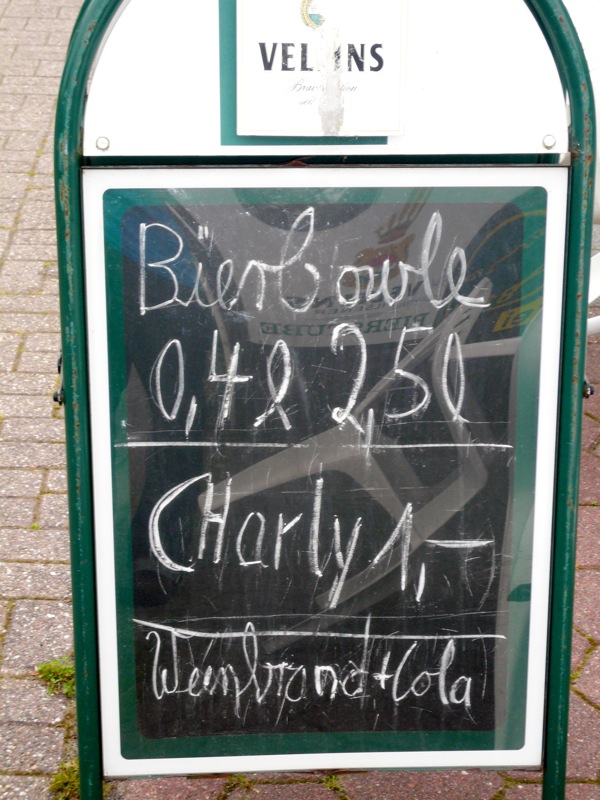 VELTINS
Bierbowle
0,4l 2,50
CHarly 1,-
Weinbrand + Cola